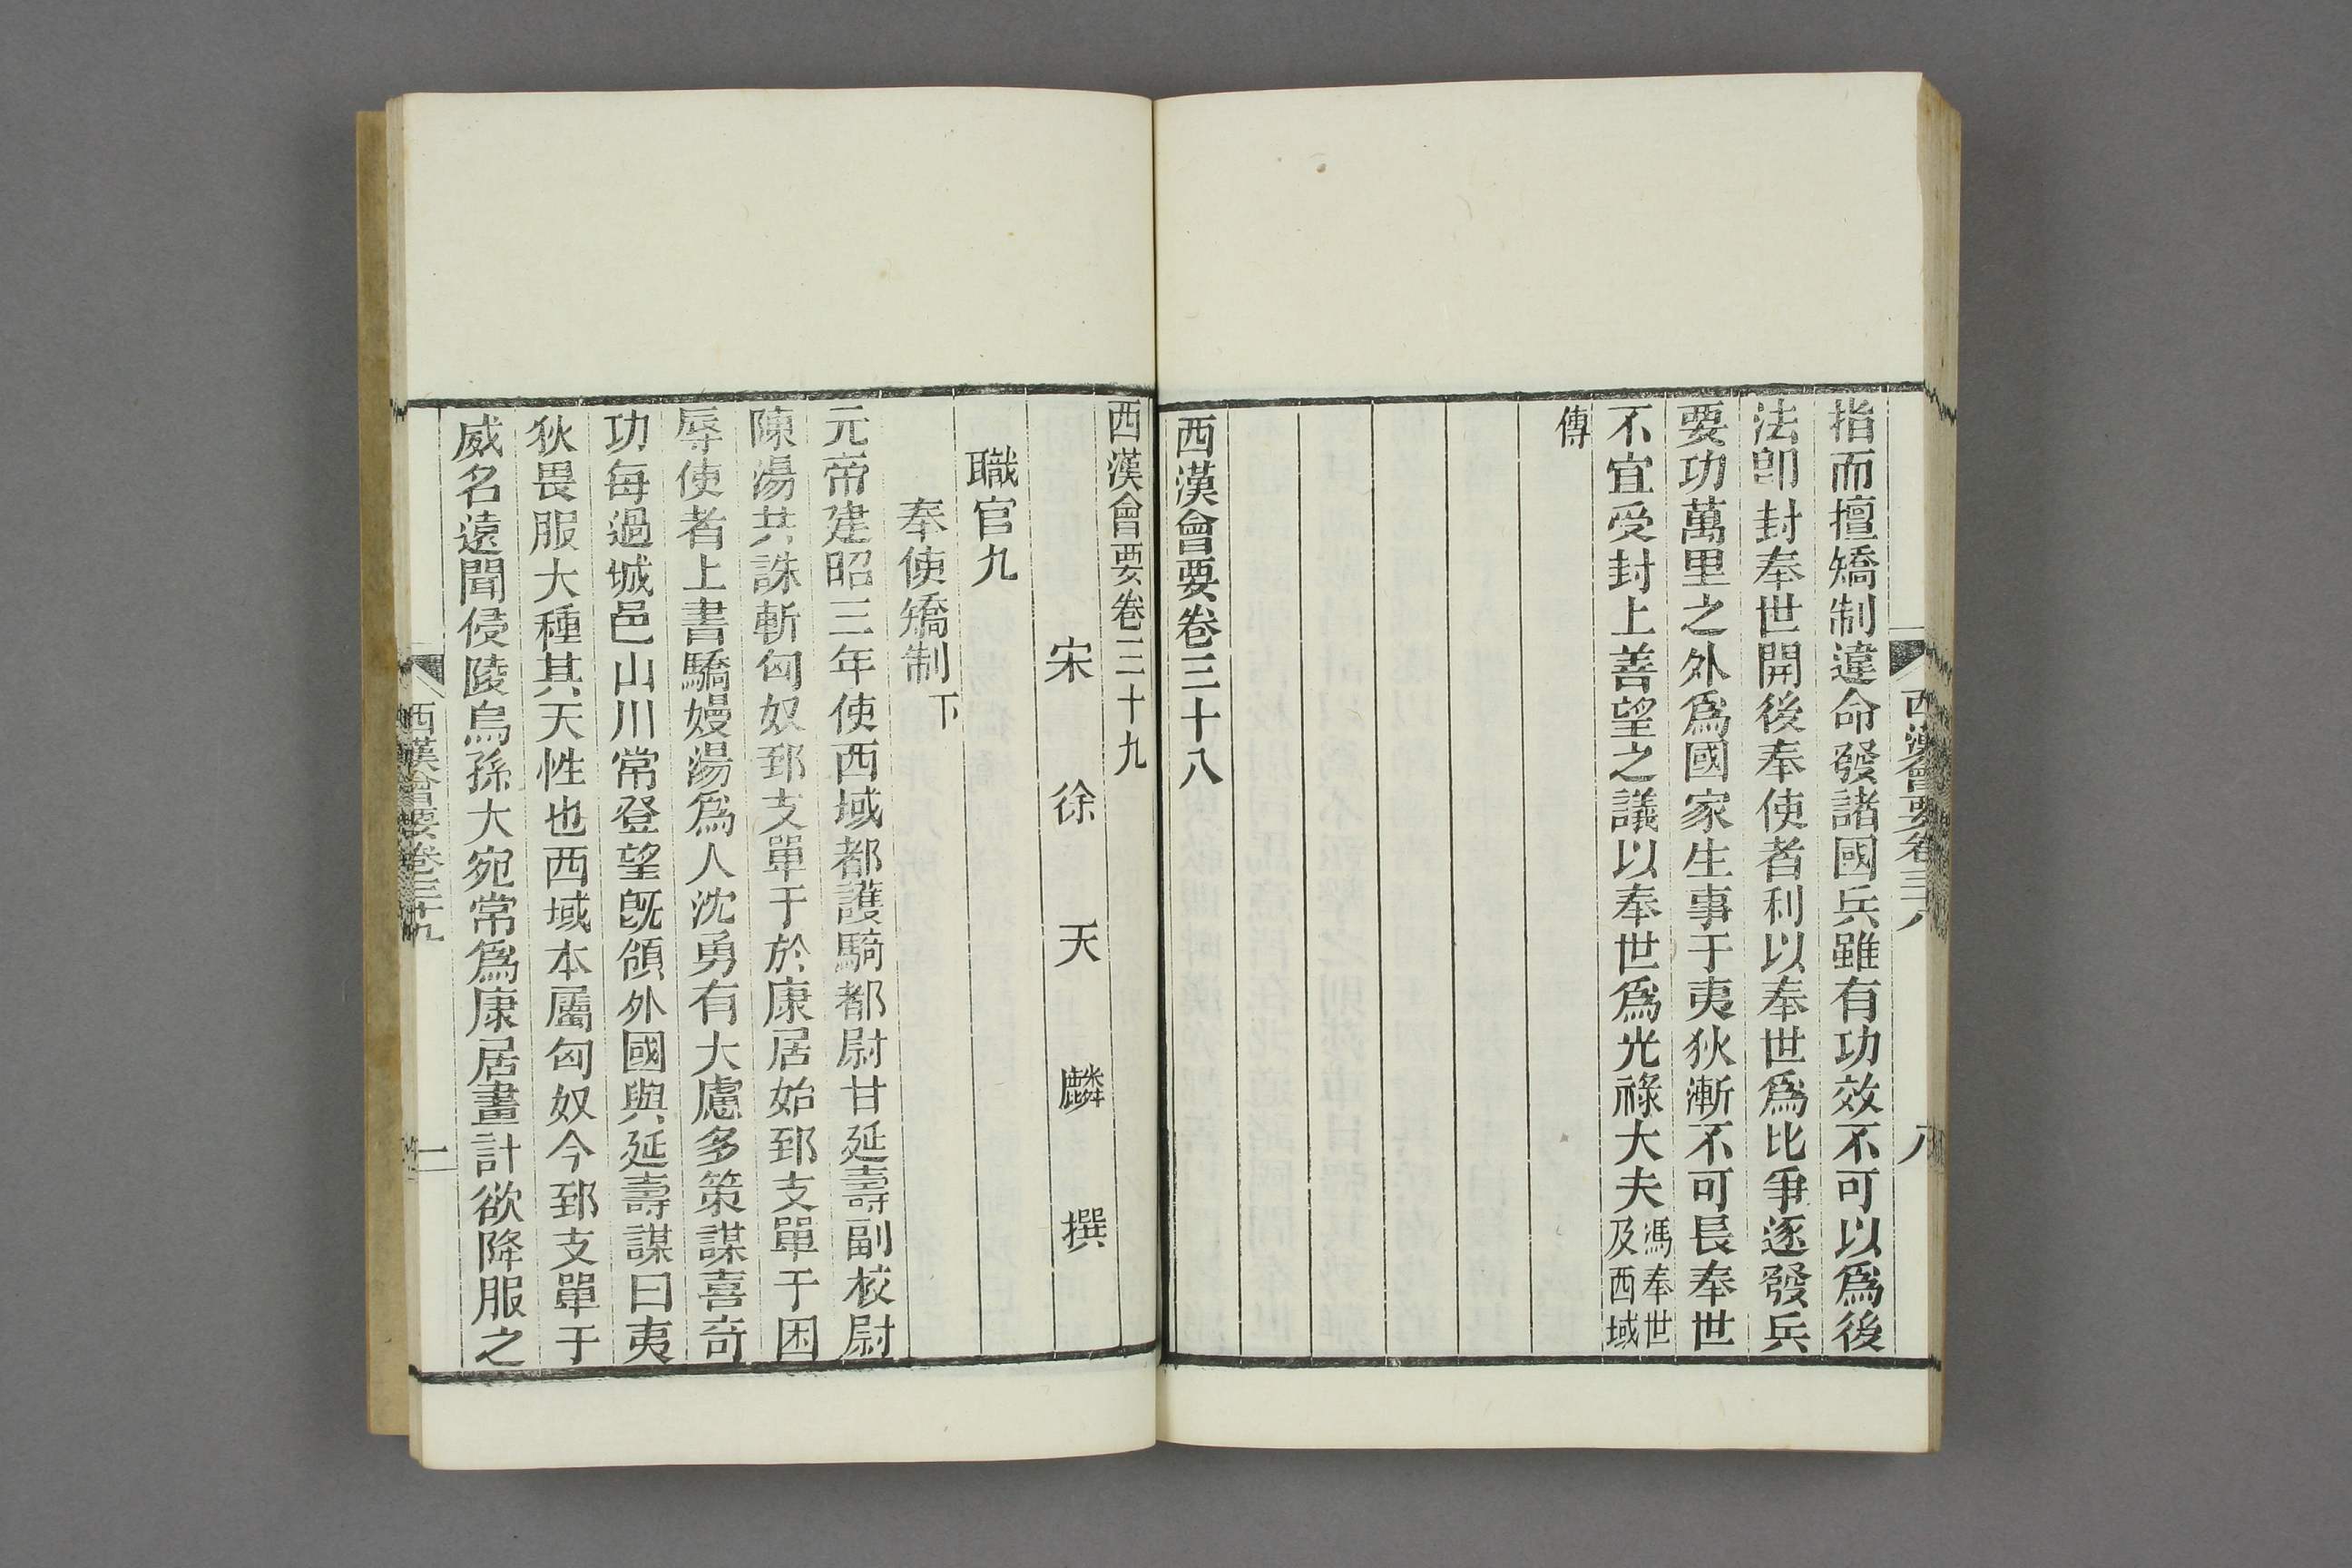 西漢會要卷三十八
八
指而擅矯制違命發諸國兵雖有功效不可以爲後
法卽封奉世開後奉使者利以奉世爲比爭逐發兵
要功萬里之外爲國家生事于夷狄漸不可長奉世
不宜受封上善望之議以奉世爲光祿大夫馮奉世及西域
傳
西漢會要卷三十八
西漢會要卷三十九
宋徐天麟撰
職官九
奉使矯制下
元帝建昭三年使西域都護騎都尉甘延壽副校尉
陳湯共誅斬匈奴郅支單于於康居始郅支單于困
辱使者上書驕嫚湯爲人沈勇有大慮多策謀喜奇
功每過城邑山川常登望旣領外國與延壽謀曰夷
狄畏服大種其天性也西域本屬匈奴今郅支單于
威名遠聞侵陵烏孫大宛常爲康居畫計欲降服之
西漢會要卷三十九
一